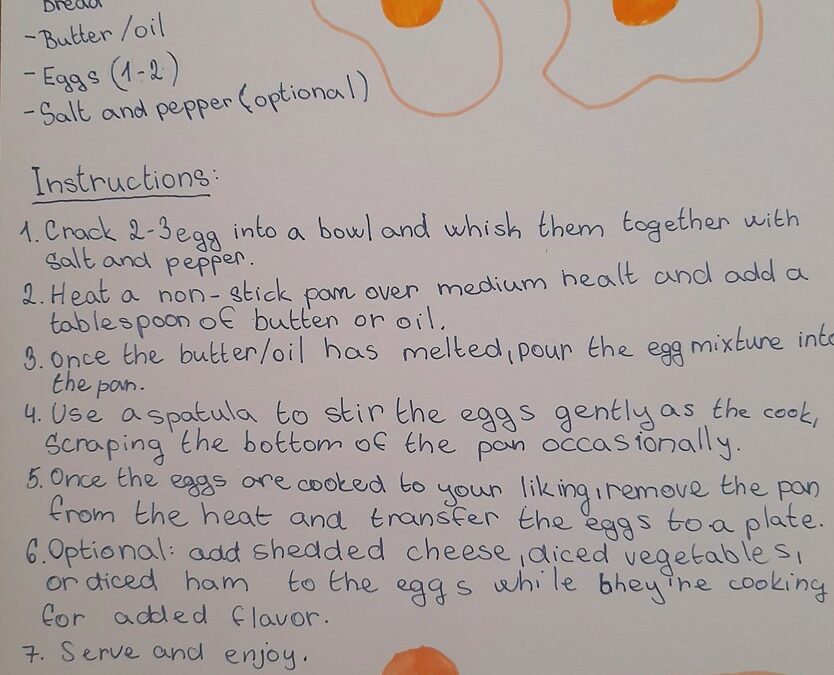 Bread
- Butter/oil
- Eggs (1-2)
- Salt and pepper (optional)
Instructions:
1. Crack 2-3 egg into a bowl and whish them together with
salt and pepper.
2. Heat a non-stick pan over medium healt and add a
tablespoon of butter or oil.
3. Once the butter/oil has melted, pour the egg mixture into
the pan.
4. Use a spatula to stir the eggs gently as the cook,
scraping the bottom of the pan occasionally.
5. Once the eggs are cooked to your liking, remove the pan
from the heat and transfer the eggs to a plate.
6. Optional: add shedded cheese, diced vegetables,
or diced ham to the eggs while they're cooking
for added flavor.
7. Serve and enjoy.